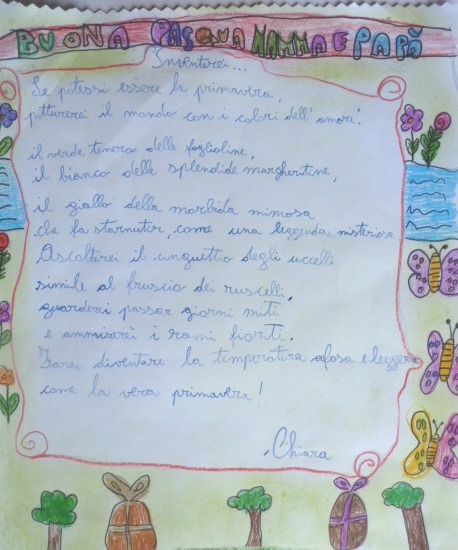 BUONA PASQUA MAMMA E PAPÀ
Inventerei...
Se potessi essere la primavera,
pitturerei il mondo con i colori dell'amore!
il verde tenero delle foglioline,
il bianco delle splendide margheritine,
il giallo della morbida mimosa
che fa starnutir, come una leggenda misteriosa
Ascolterei il cinguettio degli uccelli
simile al fruscio dei ruscelli,
guarderei passar giorni miti
e ammirerei i rami fioriti.
Farei diventare la temperatura afosa e leggera
come la vera primavera!
Chiara